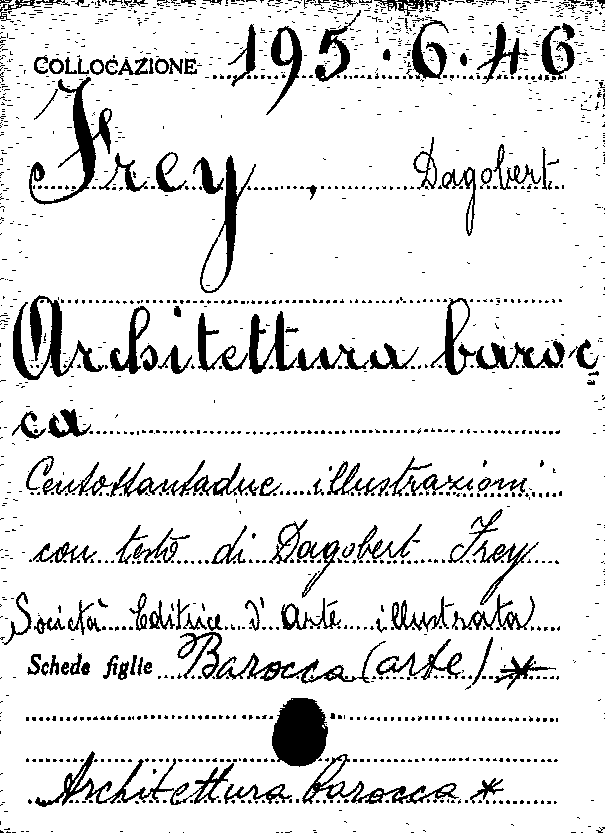 COLLOCAZIONE 195.6.46
Frey, Dagobert
Architettura baroc=
ca
Centottantadue illustrazioni
con testo di Dagobert Frey
Società Editrice d'Arte illustrata
Schede figlie Barocca (arte) *
Architettura barocca *